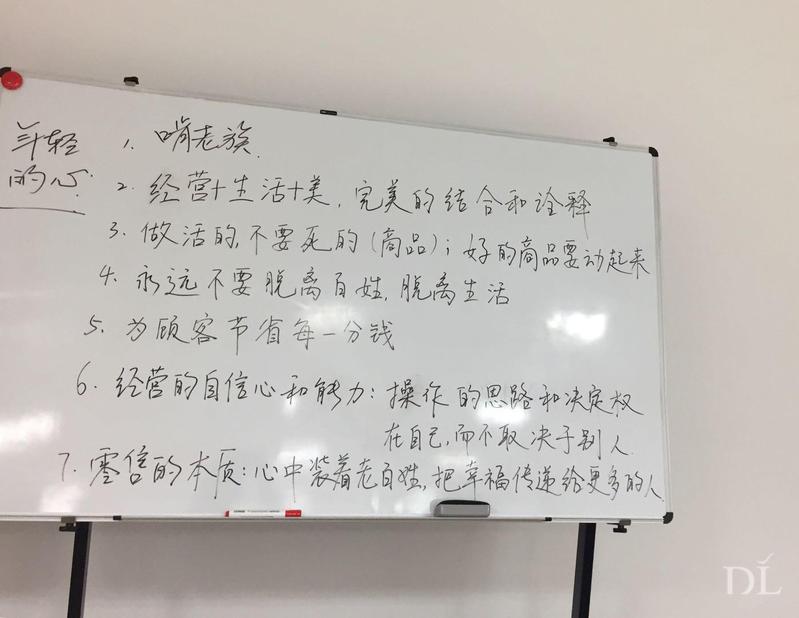 年轻
的心
1. 啃老族.
2. 经营+生活+美, 完美的结合和诠释
3. 做活的, 不要死的(商品); 好的商品要动起来
4. 永远不要脱离百姓, 脱离生活
5. 为顾客节省每一分钱
6. 经营的自信心和能力: 操作的思路和决定权
在自己, 而不取决于别人.
7. 零售的本质: 心中装着老百姓, 把幸福传递给更多的人.
DL